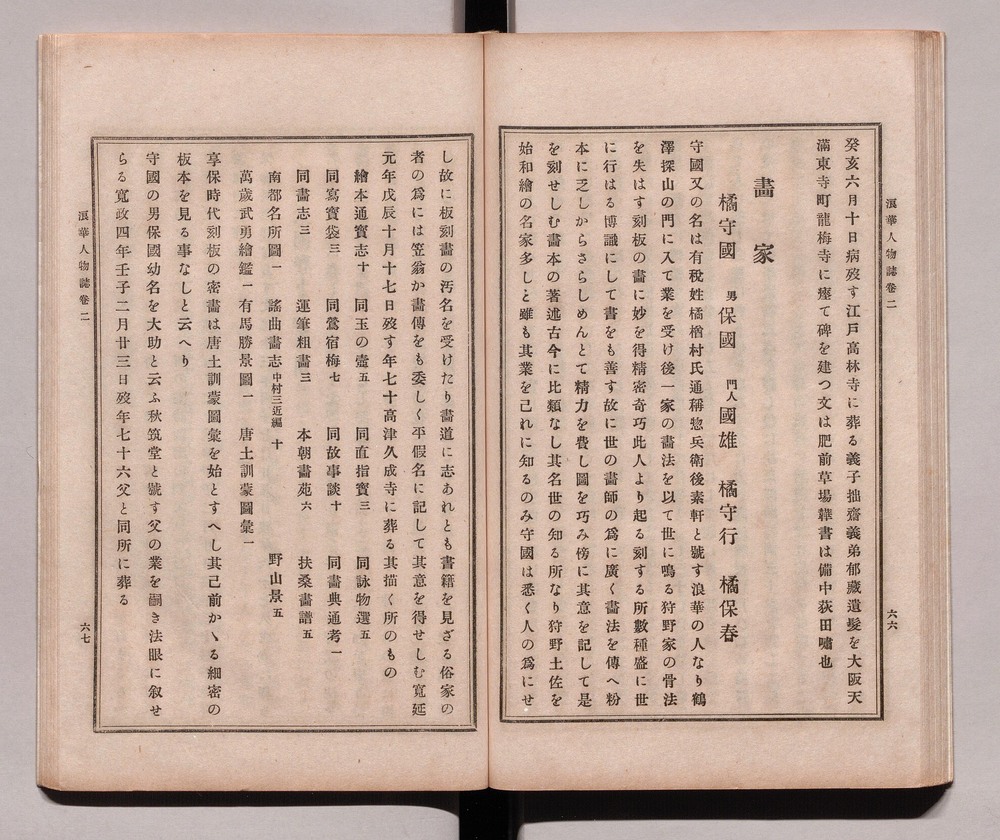 浪華人物誌卷二
六六
癸亥六月十日病歿す江戸高林寺に葬る義子拙齋義弟郁藏遺髮を大阪天
滿東寺町龍梅寺に瘞て碑を建つ文は肥前草場韡書は備中荻田嘯也
畫家
橘守國 男保國 門人國雄 橘守行 橘保春
守國又の名は有稅姓橘楢村氏通稱惣兵衞後素軒と號す浪華の人なり鶴
澤探山の門に入て業を受け後一家の畫法を以て世に鳴る狩野家の骨法
を失はす刻板の畫に妙を得精密奇巧此人より起る刻する所數種盛に世
に行はる博識にして書をも善す故に世の畫師の爲に廣く畫法を傳へ粉
本に乏しからさらしめんとて精力を費し圖を巧み傍に其意を記して是
を刻せしむ畫本の著述古今に比類なし其名世の知る所なり狩野土佐を
始和繪の名家多しと雖も其業を己れに知るのみ守國は悉く人の爲にせ
し故に板刻畫の汚名を受けたり畫道に志あれとも書籍を見ざる俗家の
者の爲には笠翁か畫傳をも委しく平假名に記して其意を得せしむ寬延
元年戊辰十月十七日歿す年七十高津久成寺に葬る其描く所のもの
繪本通寶志十 同玉の壺五 同直指寶三 同詠物選五
同寫寶袋三 同鶯宿梅七 同故事談十 同畫典通考一
同畫志三 運筆粗畫三 本朝畫苑六 扶桑畫譜五
南都名所圖一 謠曲畫志中村三近編十 野山景五
萬歲武勇繪鑑一 有馬勝景圖一 唐土訓蒙圖彙一
享保時代刻板の密畫は唐土訓蒙圖彙を始とすへし其己前かゝる細密の
板本を見る事なしと云へり
守國の男保國幼名を大助と云ふ秋筑堂と號す父の業を嗣き法眼に叙せ
らる寬政四年壬子二月廿三日歿年七十六父と同所に葬る
浪華人物誌卷二
六七